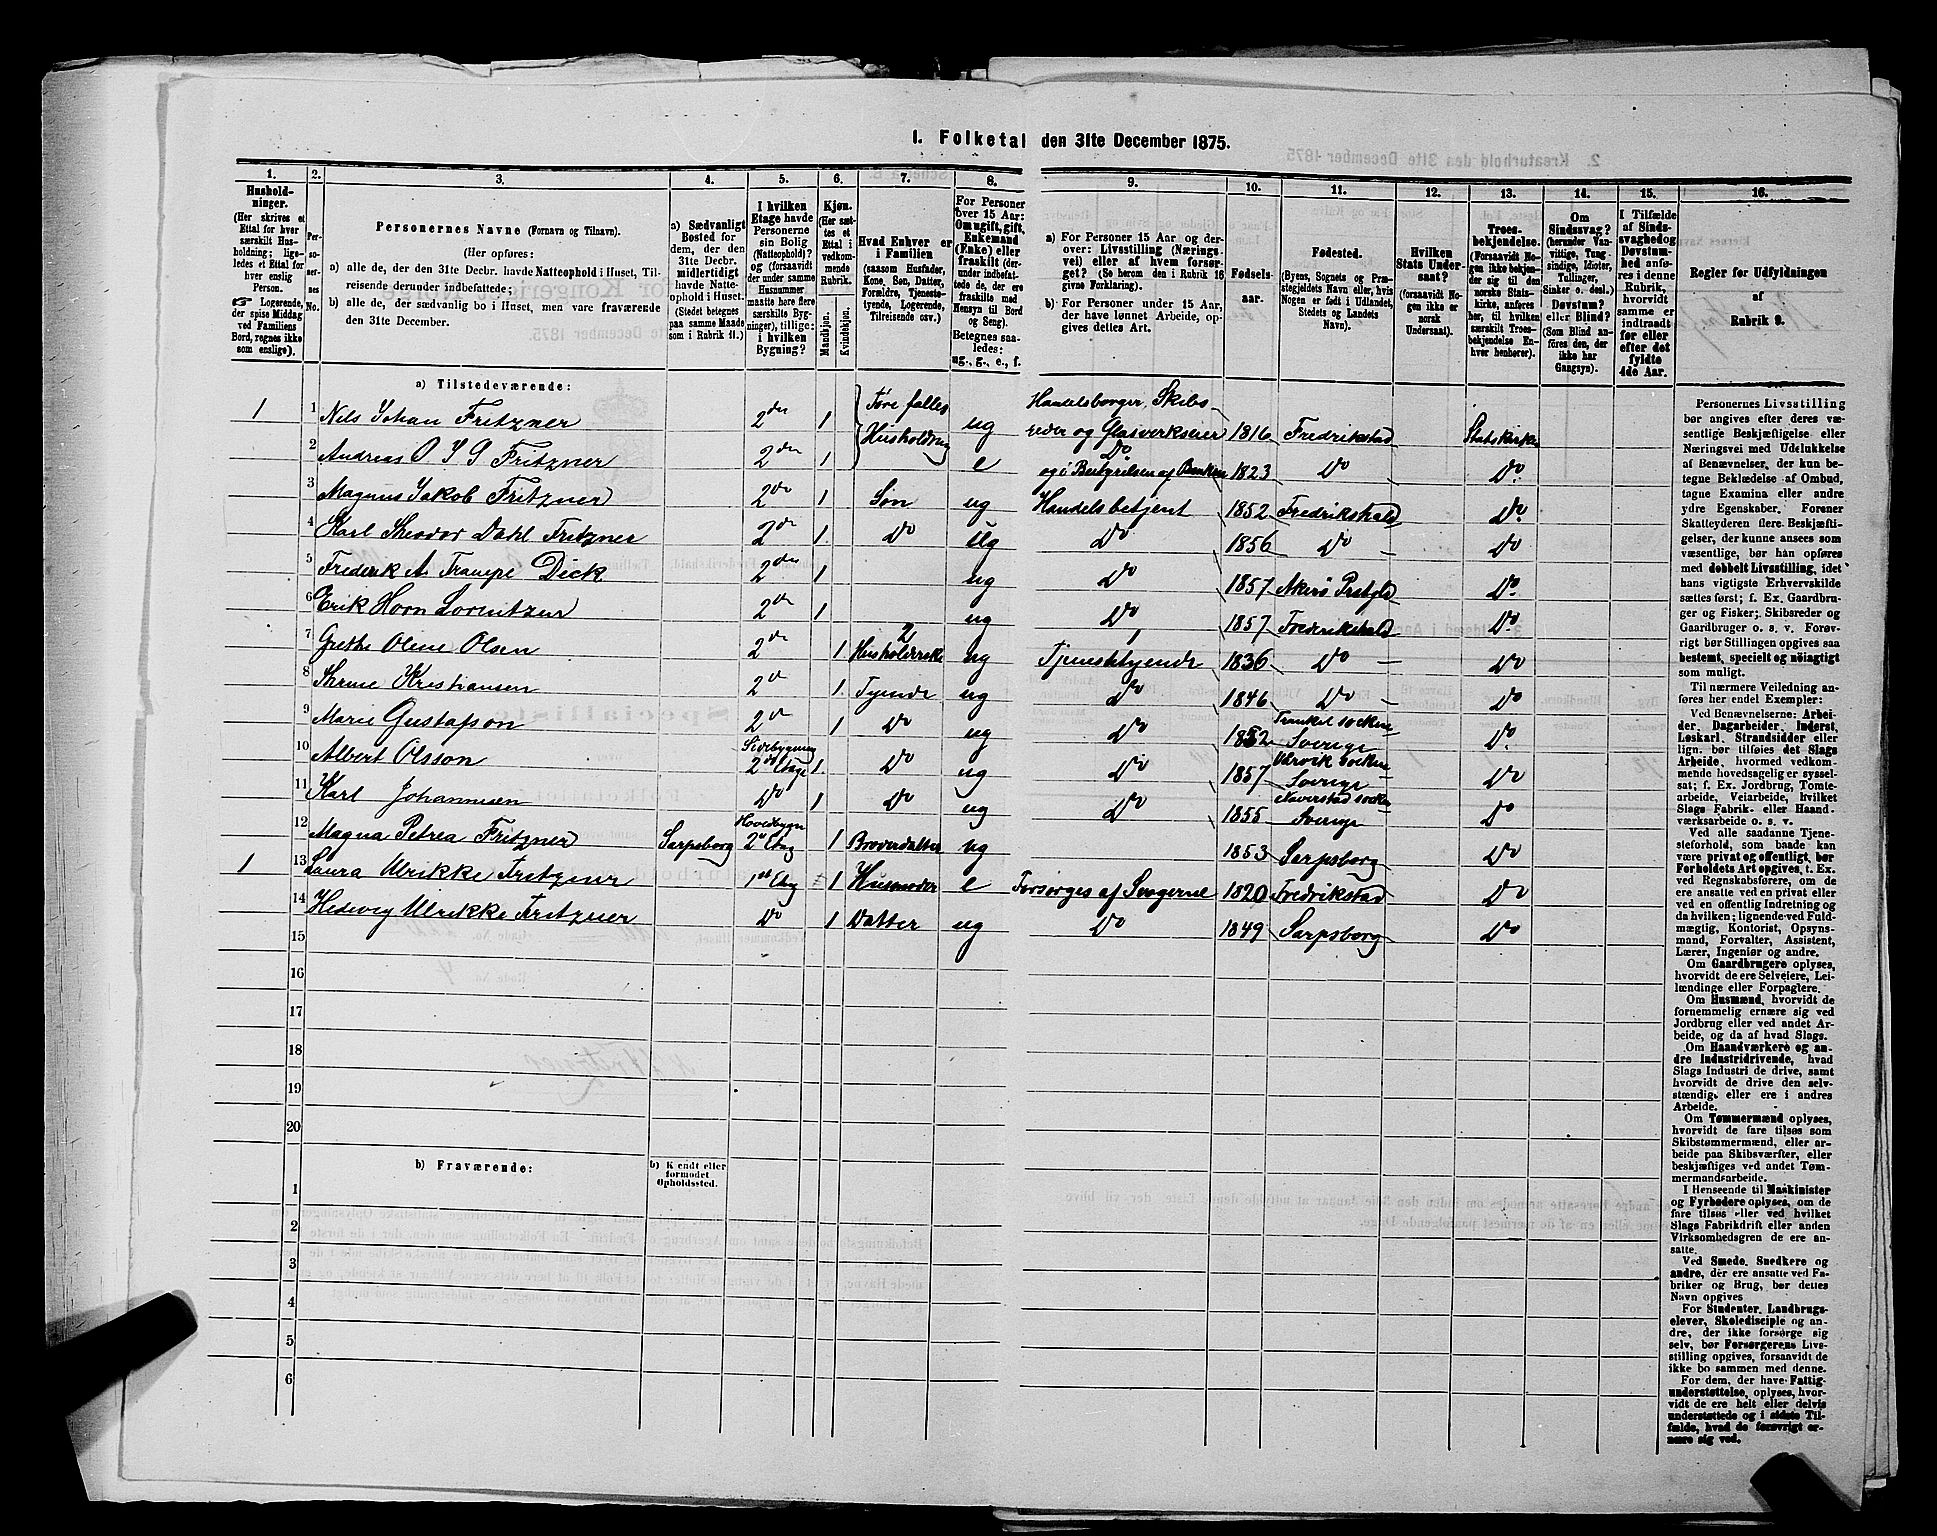 I. Folketal den 31te December 1875.
1. 2. 3. 4. 5. 6. 7. 8. 9. 10. 11. 12. 13. 14. 15. 16.
Hushold-
ninger.
(Her skrives et
Ettal for hver
særskilt Hus-
holdning; lige-
ledes et Ettal for
hver enslig
Person.
☞ Logerende,
der spise Middag
ved Familiens
Bord, regnes ikke
som enslige).
Per-
so-
ner-
nes
No.
Personernes Navne (Fornavn og Tilnavn).
(Her opføres:
a) alle de, der den 31te Decbr. havde Natteophold i Huset, Til-
reisende derunder indbefattede;
b) alle de, der sædvanlig bo i Huset, men vare fraværende
den 31te December.
a) Sædvanligt
Bosted for
dem, der den
31te Decbr.
midlertidigt
havde Natte-
ophold i Huset.
(Stedet betegnes
paa samme Maade
som i Rubrik 11.)
I hvilken
Etage havde
Personerne
sin Bolig
(Natteophold)?
og (forsaavidt
der under samme
Husnummer
maatte høre flere
særskilte Byg-
ninger), tillige:
i hvilken
Bygning?
Kjøn.
(Her sæt-
tes et
Ettal i
vedkom-
mende
Rubrik.
Mandkjøn.
Kvindekjøn.
Hvad Enhver er
i Familien
(saasom Husfader,
Kone, Søn, Datter,
Forældre, Tjeneste-
tyende, Logerende,
Tilreisende osv.)
For Personer
over 15 Aar:
Om ugift, gift,
Enkemand
(Enke) eller
fraskilt (der-
under indbefat-
tede de, der ere
fraskilte med
Hensyn til Bord
og Seng).
Betegnes saa-
ledes:
ug., g., e., f.
a) For Personer 15 Aar og der-
over: Livsstilling (Nærings-
vei) eller af hvem forsør-
get? (Se herom den i Rubrik 16
givne Forklaring).
b) For Personer under 15 Aar,
der have lønnet Arbeide, op-
gives dettes Art.
Fødsels-
aar.
Fødested.
(Byens, Sognets og Præ-
stegjeldets Navn eller, hvis
Nogen er født i Udlandet,
Stedets og Landets
Navn).
Hvilken
Stats Under-
saat?
(forsaavidt No-
gen ikke er
norsk
Undersaat).
Troes-
bekjendelse.
(Forsaavidt No-
gen ikke bekjen-
der sig til den
norske Stats-
kirke, anføres
her, til hvilken
særskilt Troes-
bekjendelse En-
hver henhører).
Om
Sindssvag?
(herunder Van-
vittige, Tung-
sindige, Idioter,
Tullinger,
Sinker o. desl.)
Døvstum?
eller Blind?
(Som Blind an-
føres den, der
ikke har
Gangsyn).
I Tilfælde
af Sinds-
svaghed og
Døvstum-
hed anfø-
res i denne
Rubrik,
hvorvidt
samme er
indtraadt
før eller
efter det
fyldte
4de Aar.
Regler for Udfyldningen
af
Rubrik 9.
a) Tilstedeværende:
1 1 Nils Johan Fritzner 2den 1 Føre fælles Husholdning ug Handelsborger, Skibs-
reder og Glasverkseier 1816 Fredrikstad Statskirken
2 Andreas O J G Fritzner 2den 1 e Do
og i Bestyrelsen af Banken 1823 Do Do
3 Magnus Jakob Fritzner 2do 1 Søn ug Handelsbetjent 1852 Fredrikshald Do
4 Karl Theodor Dahl Fritzner 2den 1 Do ug Do 1856 Do Do
5 Frederik A. Trampe Deck 2den 1 ug Do 1857 Akers Prstgld Do
6 Erik Horn Lornitzen 2den 1 ug Do 1857 Frederikshald Do
7 Grethe Olene Olsen 2de 1 Husholderske ug Tjenestetyende 1836 Do Do
8 Thrine Kristiansen 2d 1 Tyende ug Do 1846 Do Do
9 Marie Gustafson 2d 1 Do ug Do 1852 socken
Sverige Do
10 Albert Olsson Sidebygning
2den Etage 1 Do ug Do 1857 socken
Sverige Do
11 Karl Johannesen Do 1 Do ug Do 1855 Naverstad socken
Sverige Do
12 Magna Petrea Fritzner Sarpsborg Hovedbygn
2n Etag 1 Broderdatter ug 1853 Sarpsborg Do
1 13 Laura Ulrikke Fritzner 1st Etag 1 Husmoder e Forsørges af Svogerne 1820 Fredrikstad Do
14 Hedevig Ulrikke Fritzner Do 1 Datter ug Do 1849 Sarpsborg Do
15
16
17
18
19
20
b) Fraværende:
b) Kjendt eller
formodet
Opholdssted.
1
2
3
4
5
6
Personernes Livsstilling
bør angives efter deres væ-
sentlige Beskjæftigelse eller
Næringsvei med Udelukkelse
af Benævnelser, der kun be-
tegne Beklædelse af Ombud,
tagne Examina eller andre
ydre Egenskaber. Forener
Skatteyderen flere Beskjæfti-
gelser, der kunne ansees som
væsentlige, bør han opføres
med dobbelt Livsstilling, idet
hans vigtigste Erhvervskilde
sættes først; f. Ex. Gaardbru-
ger og Fisker; Skibsreder og
Gaardbruger o. s. v. Forøv-
rigt bør Stillingen opgives saa
bestemt, specielt og nøiagtigt
som muligt.
Til nærmere Veiledning an-
føres her endel Exempler:
Ved Benævnelserne: Arbei-
der, Dagarbeider, Inderst,
Løskarl, Strandsidder eller
lign. bør tilføies det Slags
Arbeide, hvormed vedkom-
mende hovedsagelig er syssel-
sat; f. Ex. Jordbrug, Tomte-
arbeide, Veiarbeide, hvilket
Slags Fabrik- eller Haand-
værksarbeide o. s. v.
Ved alle saadanne Tjene-
steforhold, som baade kan
være privat og offentligt, bør
Forholdets Art opgives, t. Ex.
ved Regnskabsførere, om de
ere ansatte ved en privat eller
ved en offentlig Indretning og
da hvilken; lignende ved Fuld-
mægtig, Kontorist, Opsyns-
mand, Forvalter, Assistent,
Lærer, Ingeniør og andre.
Om Gaardbrugere oplyses,
hvorvidt de ere Selveiere, Lei-
lændinge eller Forpagtere.
Om Husmænd, hvorvidt de
fornemmelig ernære sig ved
Jordbrug eller ved andet Ar-
beide, og da af hvad Slags.
Om Haandværkere og an-
dre Industridrivende, hvad
Slags Industri de drive, samt
hvorvidt de drive den selv-
stændig, eller ere i andres
Arbeide.
Om Tømmermænd oplyses,
hvorvidt de fare tilsøs som
Skibstømmermænd, eller ar-
beide paa Skibsværfter, eller
beskjæftiges ved andet Tøm-
mermandsarbeide.
I Henseende til Maskinister
og Fyrbødere oplyses, om de
fare tilsøs eller ved hvilket
Slags Fabrikdrift eller anden
Virksomhedsgren de ere an-
satte.
Ved Smede, Snedkere og
andre, der ere ansatte ved Fa-
briker og Brug, bør dettes
Navn opgives
For Studenter, Landbrugs-
elever, Skoledisciple og an-
dre, der ikke forsørge sig
selv, bør Forsørgerens Livs-
stilling opgives, forsaavidt de
ikke bo sammen med denne.
For dem, der have Fattig-
understøttelse, oplyses, hvor-
vidt de ere helt eller delvis
understøttede og i sidste Til-
fælde, hvad de forøvrigt er-
nære sig ved.